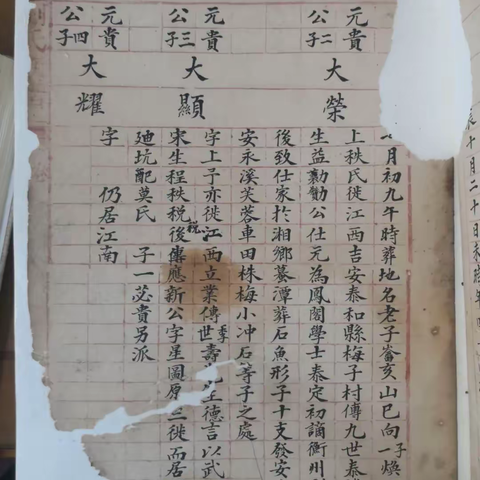 元貴
公二子
大榮
月初九午時葬地名老子崙亥山巳向子一煥
上秩氏徙江西吉安泰和縣梅子村傳九世泰
生益勷公仕元為鳳閣學士泰定初謫衡州
後致仕家於湘鄉蔞潭葬石魚形子十支發安
安永溪芙蓉車田株梅小冲石等子之處
元貴
公三子
大顯
字上子亦徙江西立業傳世季壽王德言以武
宋生程秩税後應新公字星圖原徙而居
廸坑配莫氏 子一苾貴另派
元貴
公四子
大耀
字 仍居江南